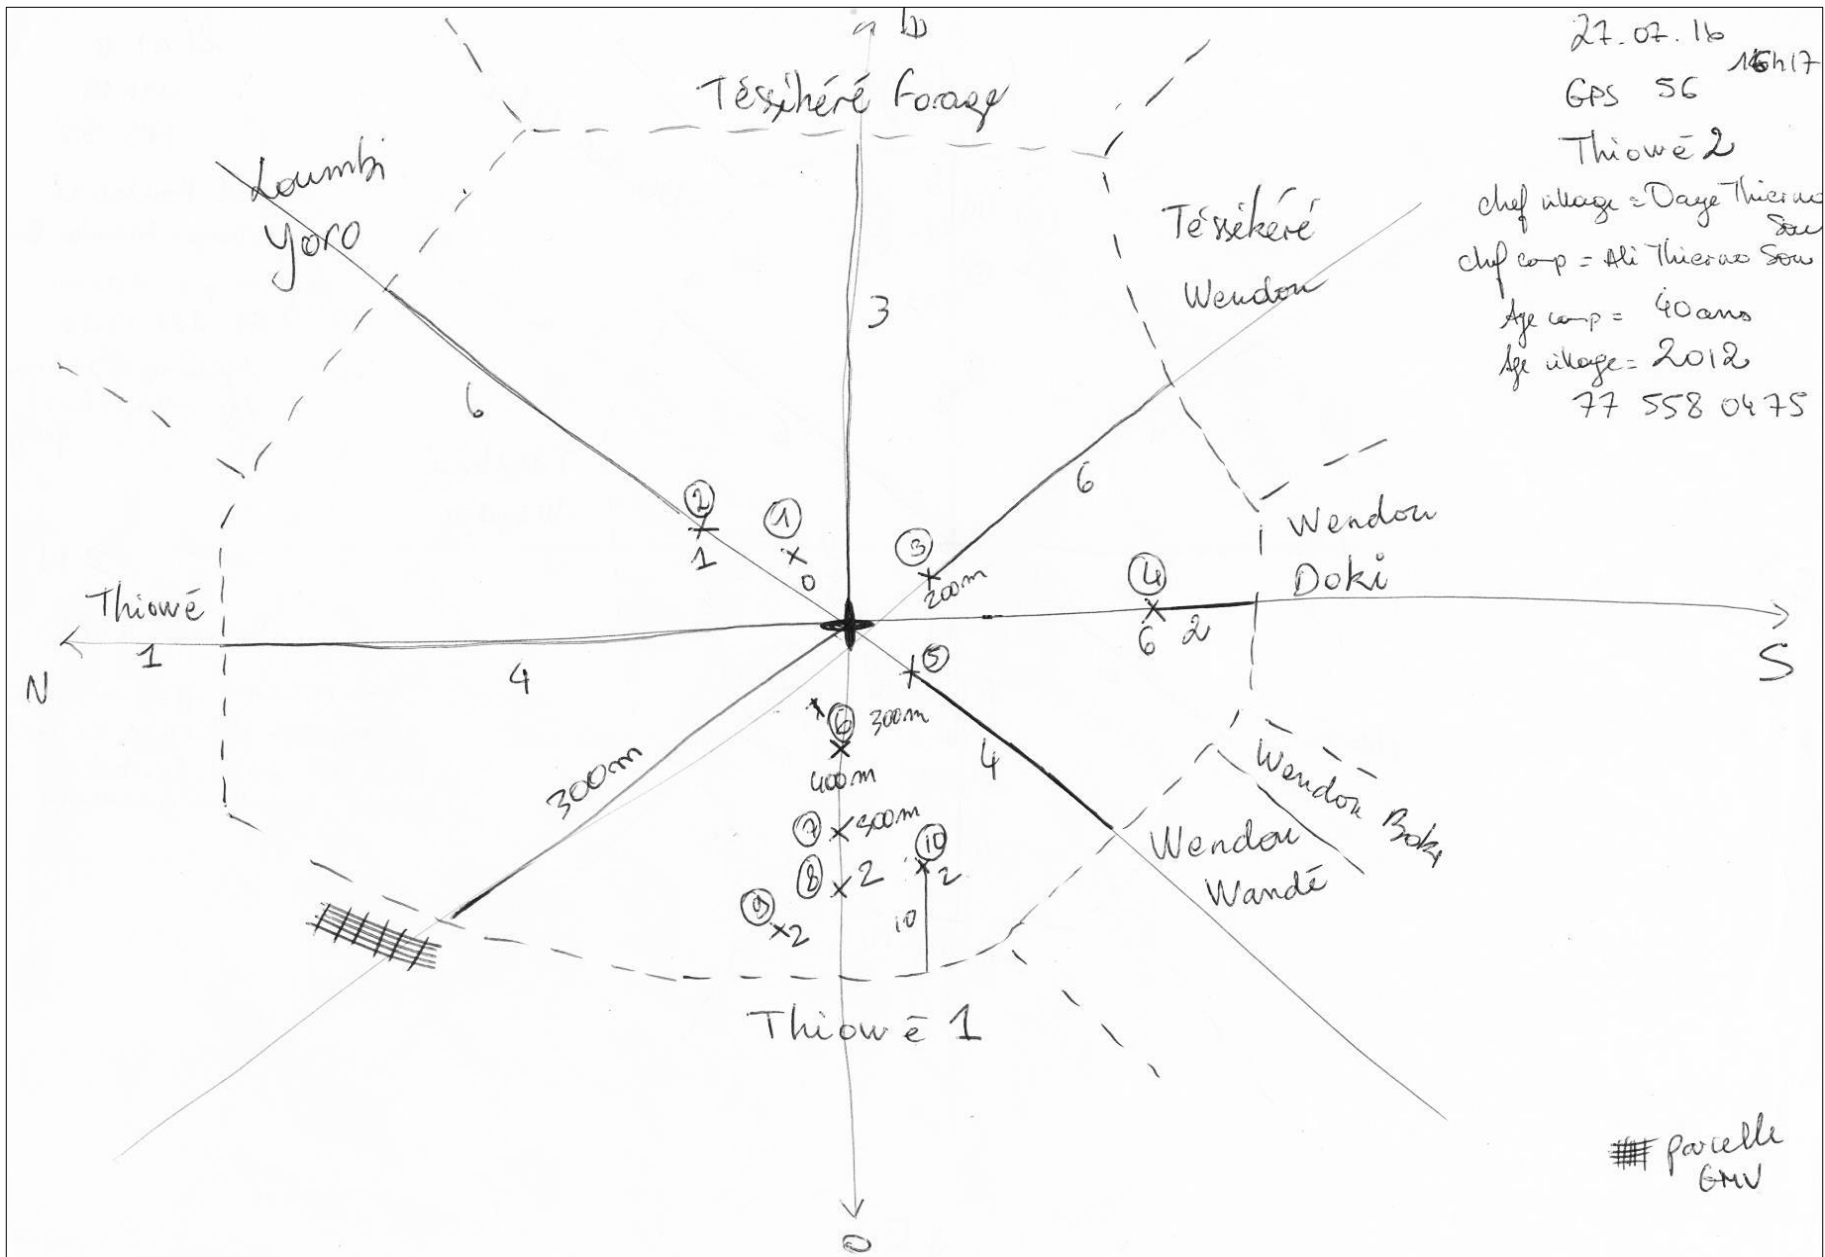 27.07.16
16h17
GPS 56
Thiowé 2
chef village = Daye Thierno
Sow
chef camp = Ali Thierno Sow
Age camp = 40 ans
Age village = 2012
77 558 0475
Téssikéré Forage
Loumbi
Yoro
Téssikéré
Wendou
3
6
6
②
1
①
0
③
200m
Wendou
Doki
④
6 2
Thiowé
1
4
N
S
⑤
⑥ 300m
400m
4
300m
⑦ 500m
⑧ 2
⑩
2
10
⑨
2
Wendou Boki
Wendou
Wandé
Thiowé 1
O
parcelle
GMV